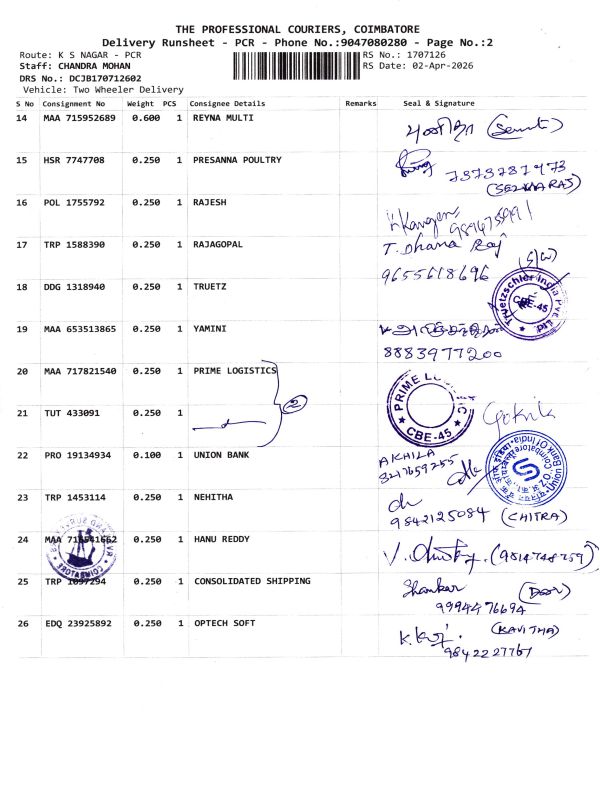 THE PROFESSIONAL COURIERS, COIMBATORE
Delivery Runsheet - PCR - Phone No.:9047080280 - Page No.:2
Route: K S NAGAR - PCR RS No.: 1707126
Staff: CHANDRA MOHAN RS Date: 02-Apr-2026
DRS No.: DCJB170712602
Vehicle: Two Wheeler Delivery
S No Consignment No Weight PCS Consignee Details Remarks Seal & Signature
14 MAA 715952689 0.600 1 REYNA MULTI
15 HSR 7747708 0.250 1 PRESANNA POULTRY
7373787473
(SELVARAJ)
16 POL 1755792 0.250 1 RAJESH
17 TRP 1588390 0.250 1 RAJAGOPAL T. Dhana Raj
(S/W)
9655618696
18 DDG 1318940 0.250 1 TRUETZ
Truetzschler India Pvt. Ltd. CBE-45
19 MAA 653513865 0.250 1 YAMINI
8883977200
20 MAA 717821540 0.250 1 PRIME LOGISTICS
2
PRIME LOGISTIC CBE-45
21 TUT 433091 0.250 1
22 PRO 19134934 0.100 1 UNION BANK AKHILA
3217659255
Union Bank Of India
23 TRP 1453114 0.250 1 NEHITHA
9842125084 (CHITRA)
24 MAA 716541662 0.250 1 HANU REDDY
(9814748759)
COIMBATORE
25 TRP 1097294 0.250 1 CONSOLIDATED SHIPPING Shanker
9994476694
26 EDQ 23925892 0.250 1 OPTECH SOFT (KAVITHA)
9842227767